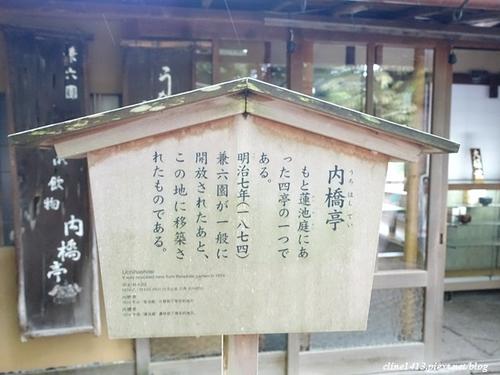 内橋亭
うちはしてい
もと蓮池庭にあ
った四亭の一つで
ある。
明治七年(一八七四)
兼六園が一般に
開放されたあと、
この地に移築さ
れたものである。
Uchihashitei
It was relocated here from Renchitei garden in 1874.
兼六園
飲物
内橋亭
cline1413.pixnet.net/blog